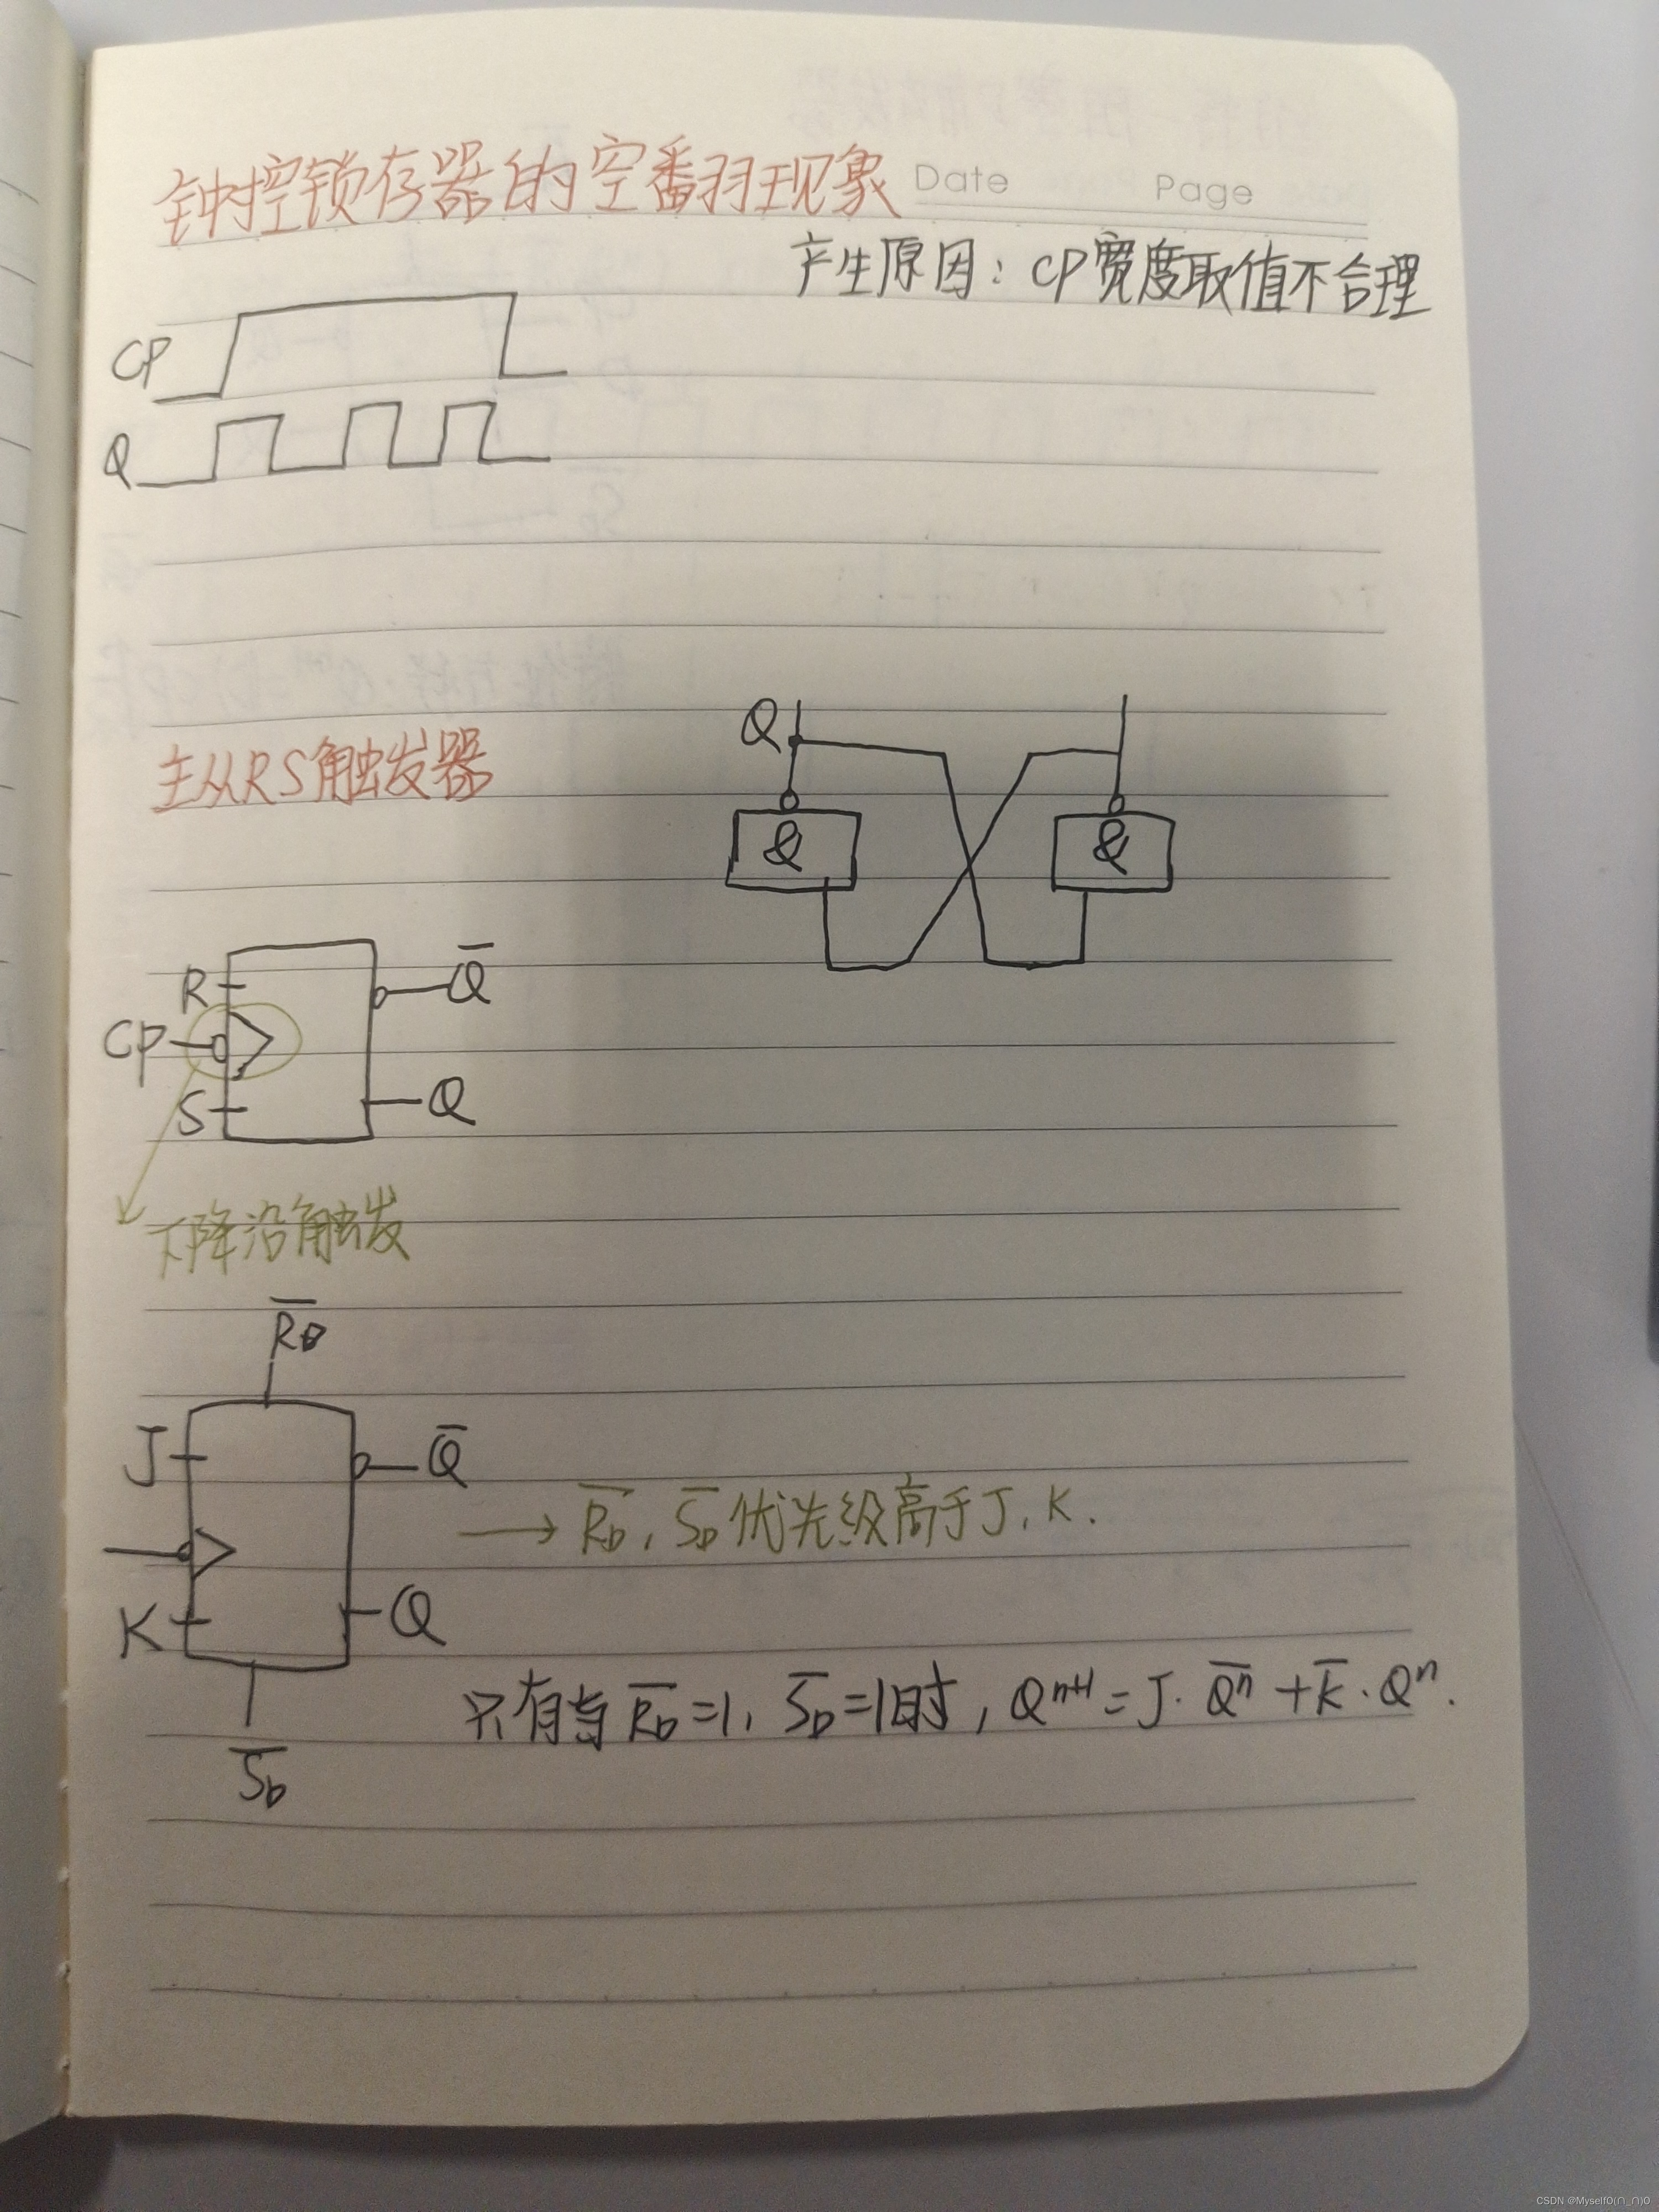 钟控锁存器的空翻现象
Date Page
产生原因：CP宽度取值不合理
CP
Q
主从RS触发器
Q
& &
R
Q̅
CP
S
Q
下降沿触发
R̅D
J
Q̅
→ R̅D, S̅D优先级高于J, K.
K
Q
只有当 R̅D=1, S̅D=1时, Qⁿ⁺¹=J·Q̅ⁿ+K̅·Qⁿ.
S̅D
CSDN @MyselfO(∩_∩)O